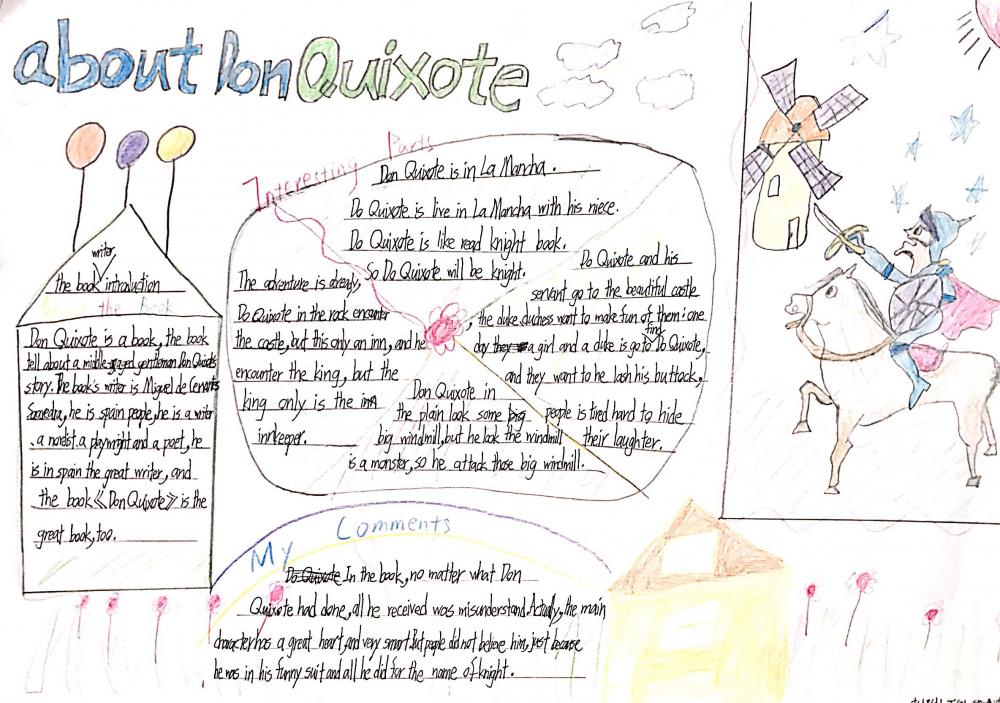 about Don Quixote
writer
the book introduction
the Book
Don Quixote is a book, the book
tell about a middle-aged gentleman Don Quixote
story. The book's writer is Miguel de Cervantes
Saavedra, he is spain people, he is a writer
, a novelist a playwright and a poet, he
is in spain the great writer, and
the book《Don Quixote》is the
great book, too.
Interesting Parts
Don Quixote is in La Mancha.
Do Quixote is live in La Mancha with his niece.
Do Quixote is like read knight book.
So Do Quixote will be knight.
The adventure is already,
Do Quixote in the rock encunter
the castle, but this only an inn, and he
encounter the king, but the
king only is the inn
innkeeper.
Do Quixote and his
servant go to the beautiful castle
, the duke, duchess want to make fun of them: one
day a girl and a duke is go to find Do Quixote,
and they want to he lash his buttock,
people is tired hard to hide
their laughter.
Don Quixote in
the plain look some big
big windmill, but he look the windmill
is a monster, so he attack those big windmill.
My Comments
Do Quixote In the book, no matter what Don
Quixote had done, all he received was misunderstand. Actually, the main
character has a great heart, and very smart. But people did not believe him, just because
he was in his funny suit and all he did for the name of knight.